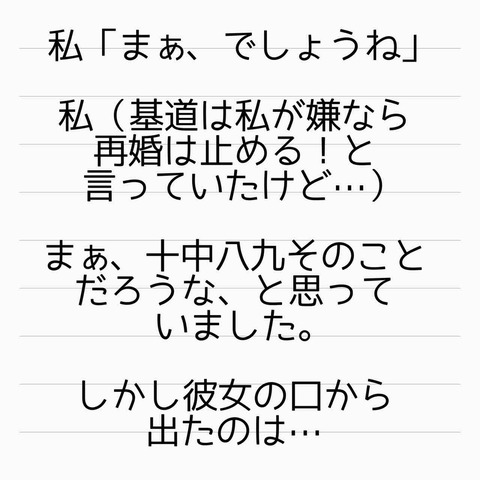 私「まぁ、でしょうね」
私（基道は私が嫌なら
再婚は止める！と
言っていたけど…）
まぁ、十中八九そのこと
だろうな、と思って
いました。
しかし彼女の口から
出たのは…